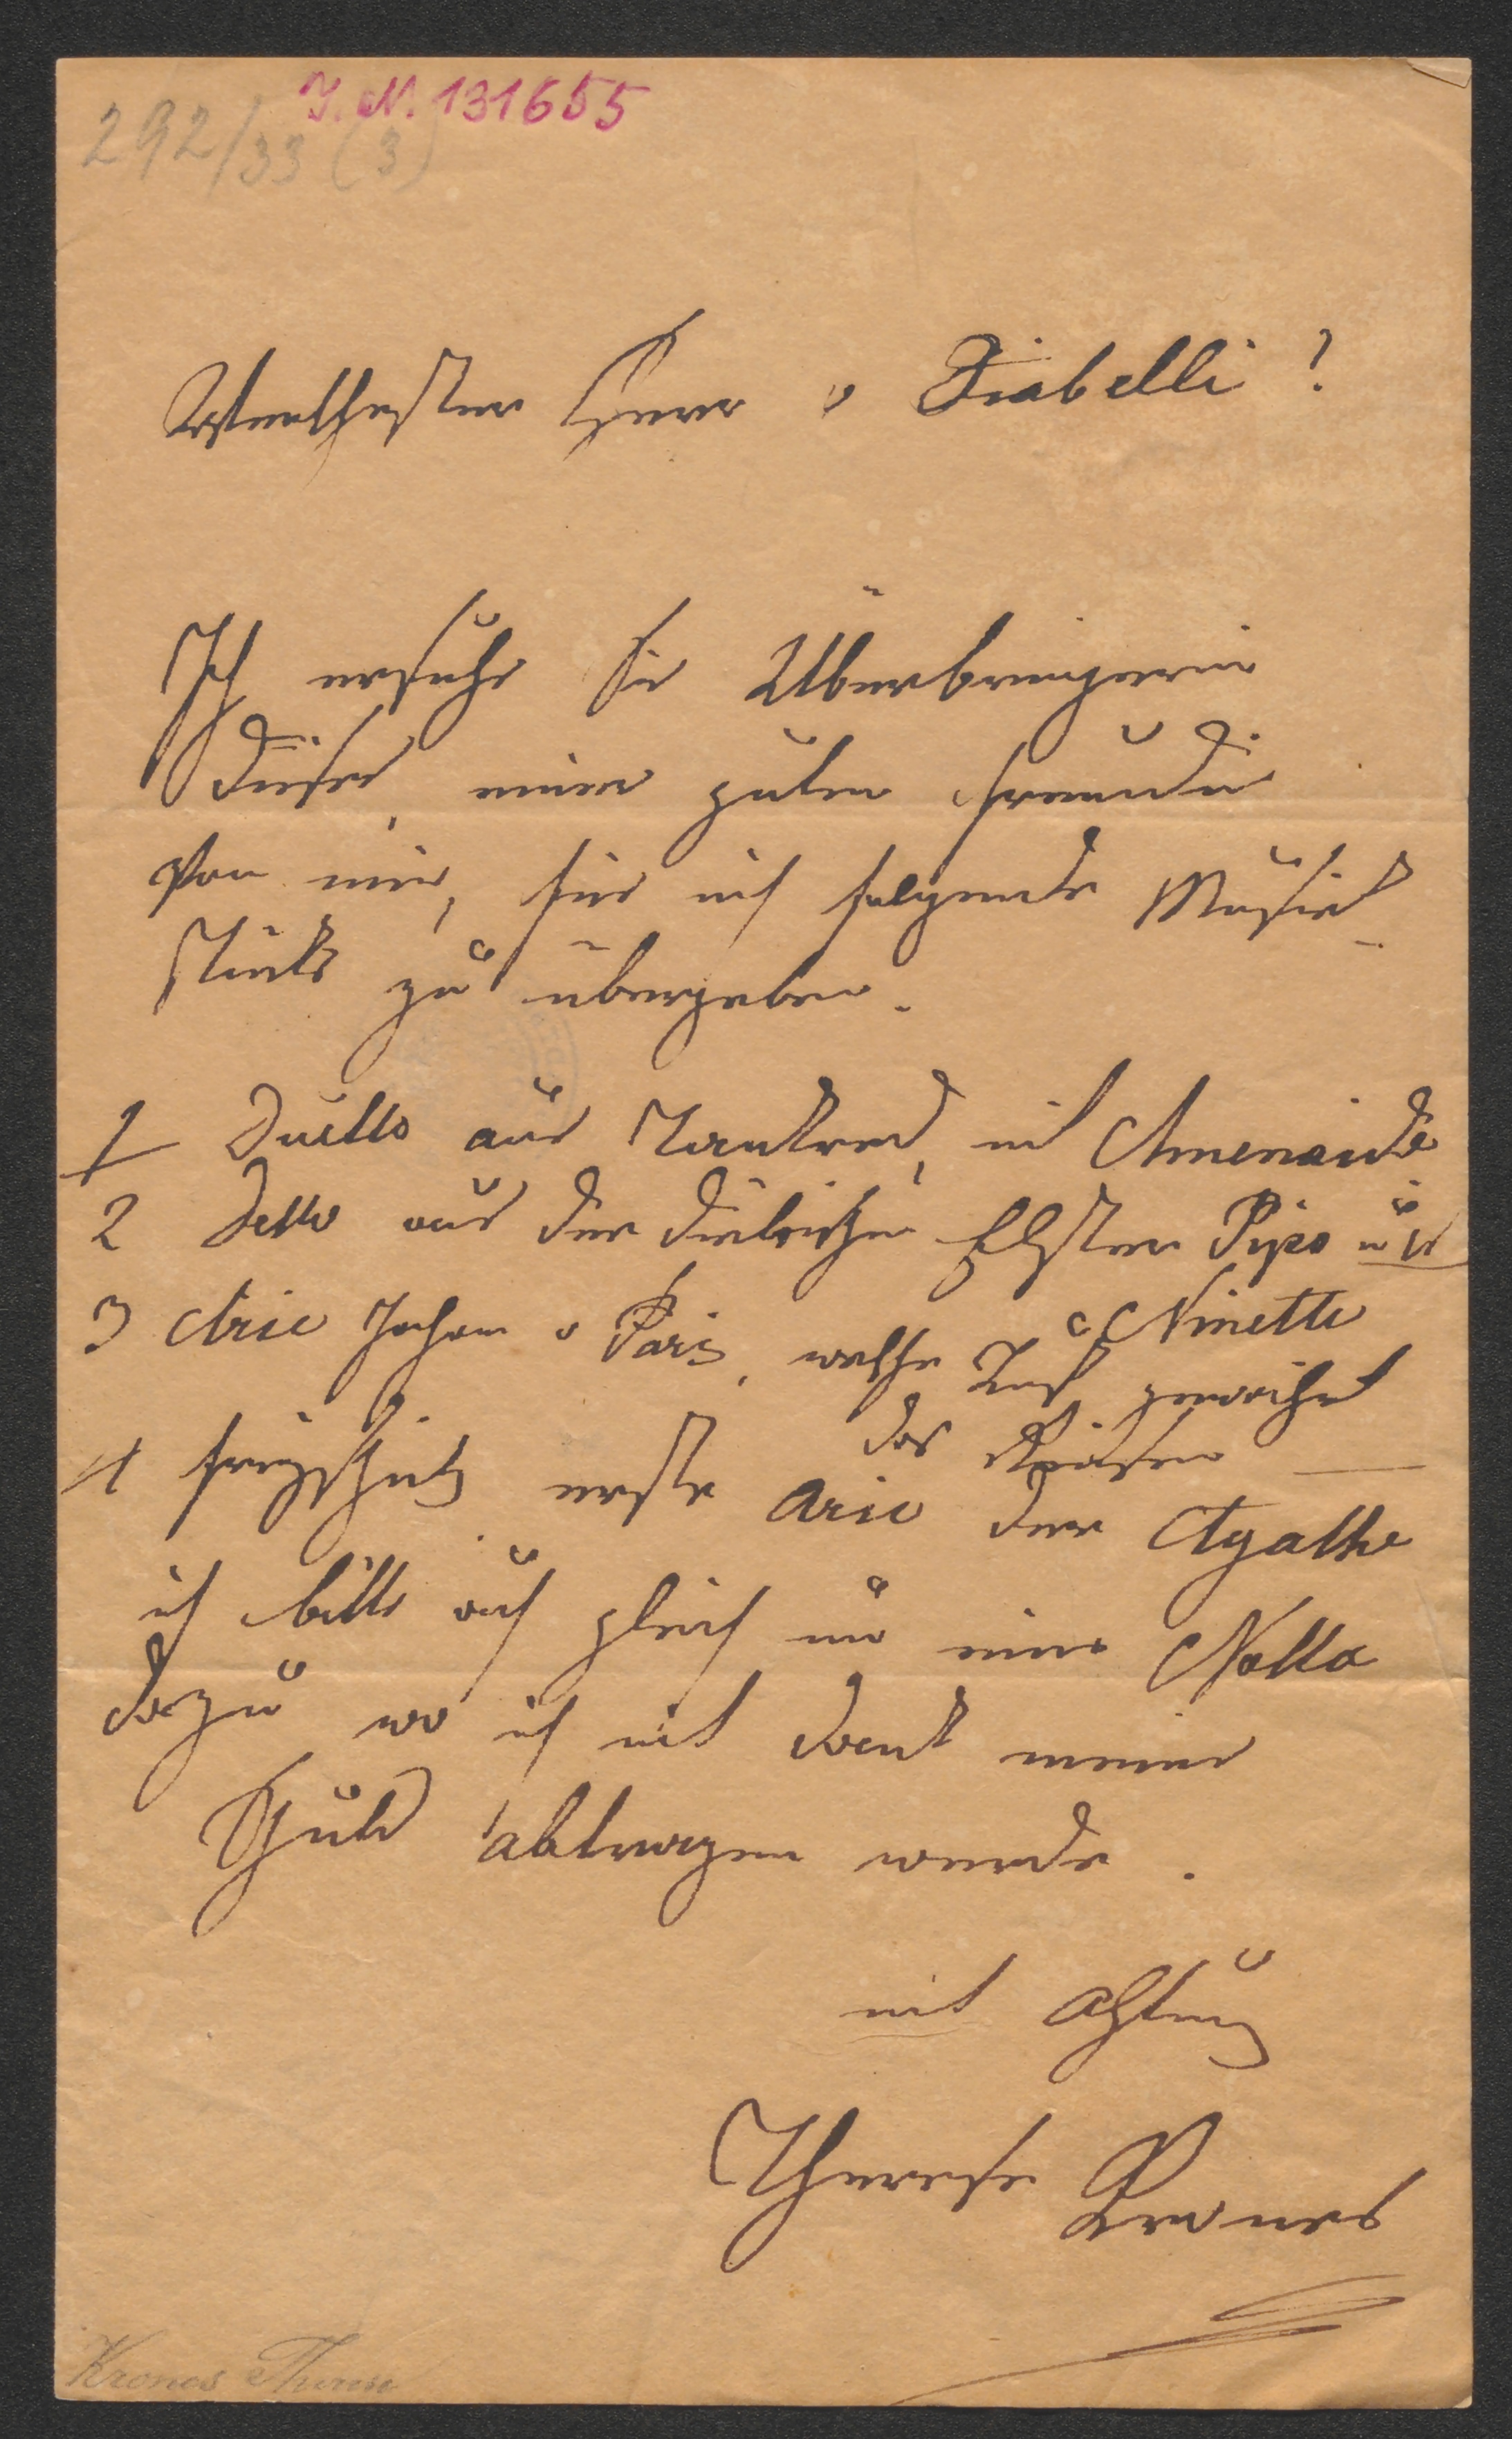 J. N. 131655
292/33 (3)
Werthester Herr v Diabelli!
Ich ersuche sie Überbringerin
dieses, einer guten Freundin
von mir, für mich folgende Musick
stücke zu übergeben.
1 Duetto aus Tankred, mit Amenaide
2 Detto aus der diebischen Elster Pipo und
Ninette
3 Arie Johan v Paris, welche Lust gewährt
das Reisen —
4 Freyschütz erste Arie der Agathe
ich bitte auch gleich um eine Notta
dazu wo ich mit Dank meine
Schuld abtragen werde.
mit Achtung
Therese Krones
Krones Therese